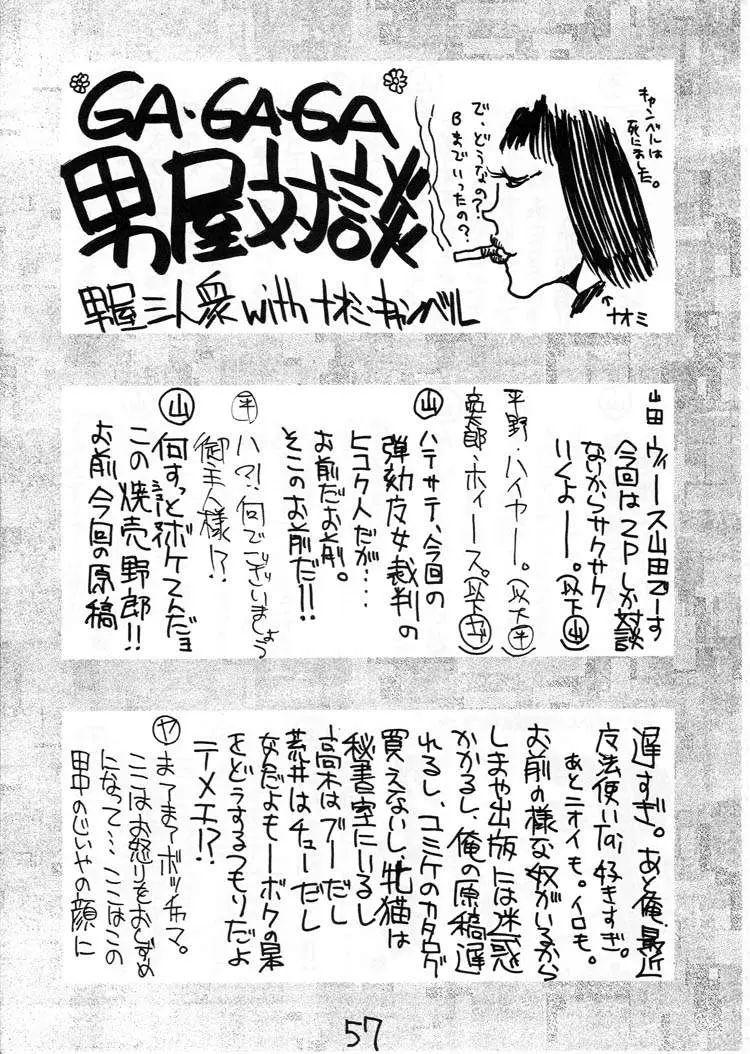 GA・GA・GA
男屋対談
男屋三人衆withナオミ・キャンベル
で、どうなの?
Bまでいったの?
キャンベルは
死にました。
↑ナオミ
山田 ヴィース山田でーす
今回は2Pしか対談
ないからサクサク
いくよーー。(以下山)
平野・ハイヤー。(以下平)
・ホィース。(以下ヤ)
山 ハテサテ、今回の
弾劾女裁判の
ヒコク人だが‥‥
お前だお前。
そこのお前だ!!
平 ハ?!何でございましょう
御主人様!?
山 何すっとボケてんだョ
この焼売野郎!!
お前、今回の原稿
遅すぎ。あと俺、最近
魔法使いTai好きすぎ。
あとニオイも。イロも。
お前の様な奴がいるから
しまや出版には迷惑
かかるし、俺の原稿遅
れるし、コミケのカタログ
買えないし、牝猫は
秘書室にいるし
高木はブーだし
荒井はチューだし
なんだよもーボクの
をどうするつもりだよ
テメエ!?
ヤ まてまてボッチャマ。
ここはお怒りをおしずめ
になって…ここはこの
田中のじいやの顔に
57